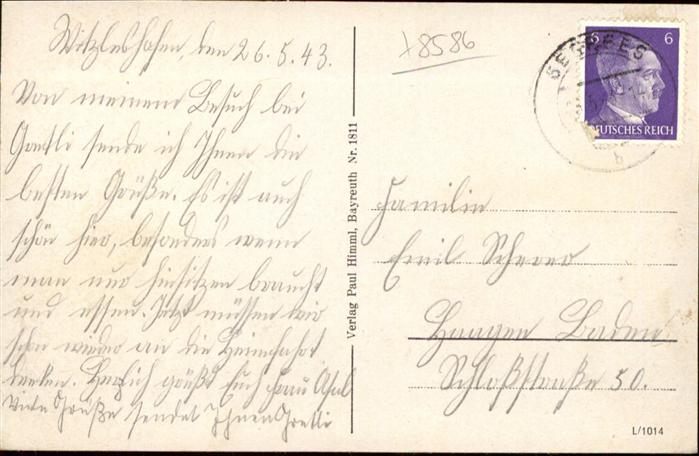 Witzleshofen, den 26.5.43.
Von meinem Besuch bei
Gretli sende ich Ihnen die
besten Grüße. Es ist auch
schön hier, besonders wenn
man nur hinsitzen braucht
und essen. Jetzt müssen wir
schon wieder an die Heimfahrt
denken. Herzlich grüßt Euch Frau
Viele Grüße sendet Ihnen Gretli
Verlag Paul Himml, Bayreuth Nr. 1811
+8586
6 6
DEUTSCHES REICH
b
Familie
Emil Scherer
Haagen Baden
Schloßstraße 50.
L/1014